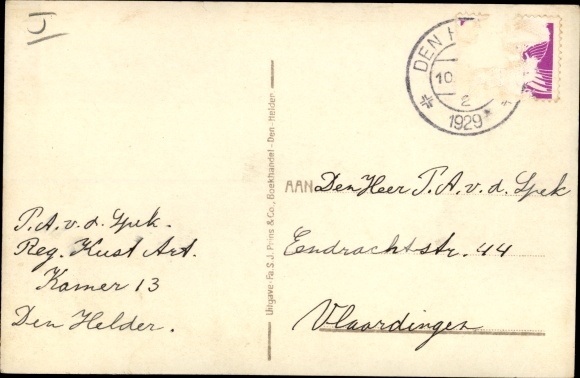 J
DEN H
10
2
1929
Uitgave: Fa. S. J. Prins & Co., Boekhandel - Den-Helder
T.A.v.d. Spek.
Reg. Kust Art.
Kamer 13
Den Helder.
AAN Den Heer T.A.v.d. Spek
Eendrachtstr. 44
Vlaardingen